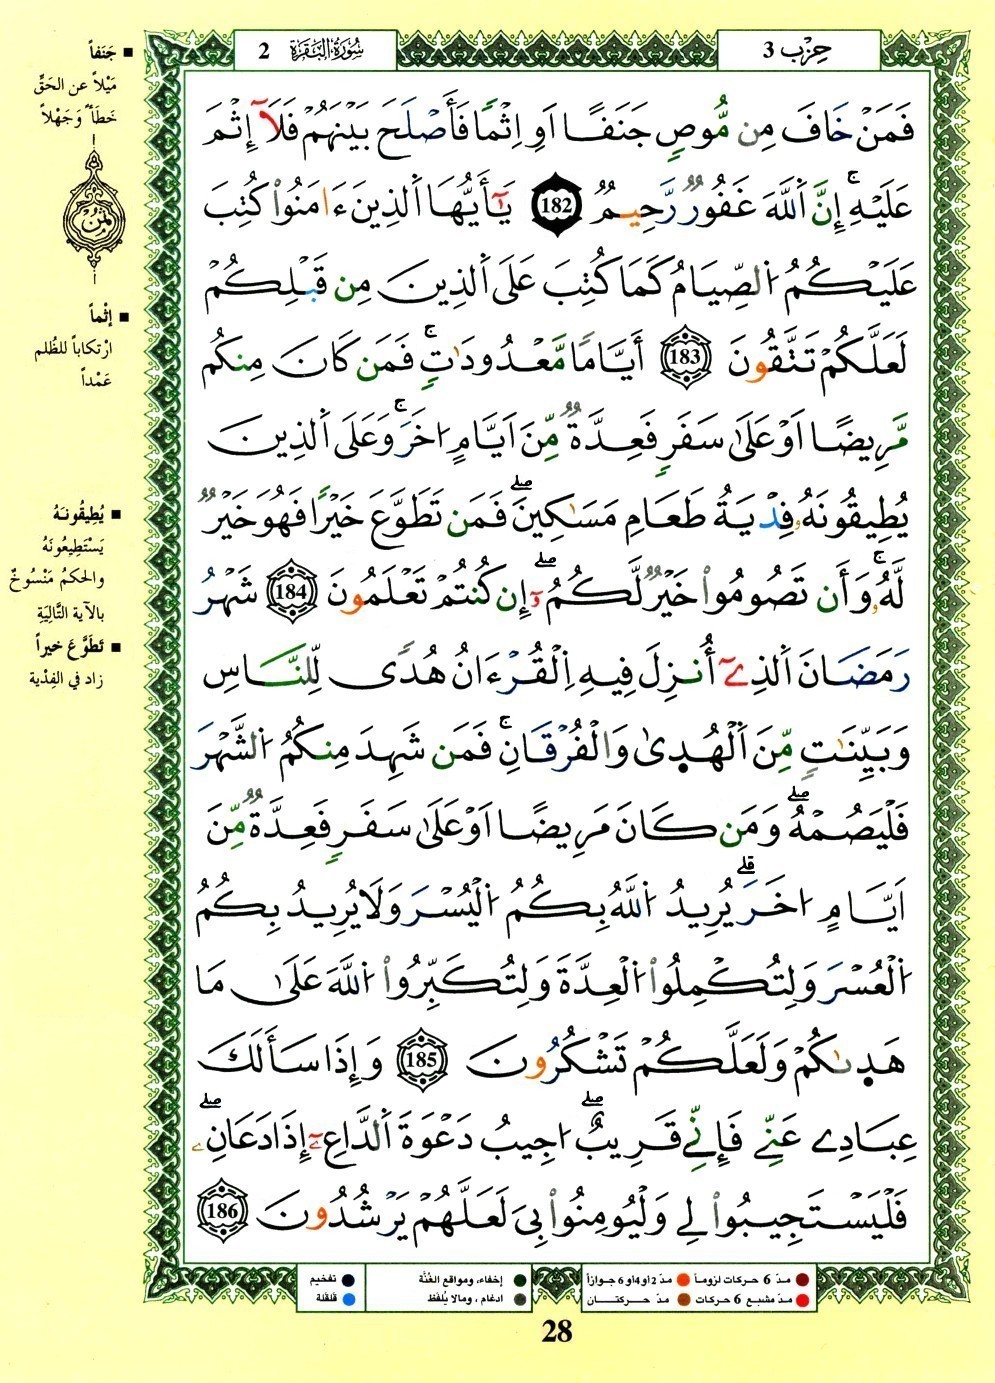 حِزْب 3
سُورَةُ البَقَرَةِ 2
فَمَنْ خَافَ مِن مُّوصٖ جَنَفًا اَوِ اِثْمًا فَأَصْلَحَ بَيْنَهُمْ فَلَآ إِثْمَ
عَلَيْهِۚ إِنَّ اَ۬للَّهَ غَفُورٞ رَّحِيمٞ 182 يَٰٓأَيُّهَا اَ۬لذِينَ ءَامَنُواْ كُتِبَ
عَلَيْكُمُ اُ۬لصِّيَامُ كَمَا كُتِبَ عَلَى اَ۬لذِينَ مِن قَبْلِكُمْ
لَعَلَّكُمْ تَتَّقُونَ 183 أَيَّامٗا مَّعْدُودَٰتٖۚ فَمَن كَانَ مِنكُم
مَّرِيضًا اَوْ عَلَىٰ سَفَرٖ فَعِدَّةٞ مِّنَ اَيَّامٍ اُخَرَۚ وَعَلَى اَ۬لذِينَ
يُطِيقُونَهُۥ فِدْيَةُ طَعَامِ مَسَٰكِينَۖ فَمَن تَطَوَّعَ خَيْرٗا فَهُوَ خَيْرٞ
لَّهُۥۚ وَأَن تَصُومُواْ خَيْرٞ لَّكُمُۥٓۖ إِن كُنتُمْ تَعْلَمُونَ 184 شَهْرُ
رَمَضَانَ اَ۬لذِےٓ أُنزِلَ فِيهِ اِ۬لْقُرْءَانُ هُدٗى لِّلنَّاسِ
وَبَيِّنَٰتٖ مِّنَ اَ۬لْهُد۪ىٰ وَالْفُرْقَانِۚ فَمَن شَهِدَ مِنكُمُ اُ۬لشَّهْرَ
فَلْيَصُمْهُۖ وَمَن كَانَ مَرِيضًا اَوْ عَلَىٰ سَفَرٖ فَعِدَّةٞ مِّنَ
اَيَّامٍ اُخَرَۗ يُرِيدُ اُ۬للَّهُ بِكُمُ اُ۬لْيُسْرَ وَلَا يُرِيدُ بِكُمُ
اُ۬لْعُسْرَ وَلِتُكْمِلُواْ اُ۬لْعِدَّةَ وَلِتُكَبِّرُواْ اُ۬للَّهَ عَلَىٰ مَا
هَد۪ىٰكُمْ وَلَعَلَّكُمْ تَشْكُرُونَ 185 وَإِذَا سَأَلَكَ
عِبَادِے عَنِّے فَإِنِّے قَرِيبٌۖ اُجِيبُ دَعْوَةَ اَ۬لدَّاعِۦٓ إِذَا دَعَانِۦۖ
فَلْيَسْتَجِيبُواْ لِے وَلْيُومِنُواْ بِىَ لَعَلَّهُمْ يَرْشُدُونَ 186
جَنَفاً
مَيْلاً عن الحَقِّ
خَطَأً وَجَهْلاً
ثُمُن
إثْماً
ارْتكاباً للظُلم
عَمْداً
يُطِيقُونَهُ
يَسْتَطِيعُونَهُ
والحكمُ مَنْسُوخٌ
بالآية التَّالِيَةِ
تَطَوَّعَ خيراً
زاد في الفِدْية
مدّ 6 حركات لزوماً
مدّ 2 أو 4 أو 6 جوازاً
إخفاء، ومواقع الغُنَّة
تفخيم
مدّ مشبع 6 حركات
مدّ حركتـان
ادغام ، ومالا يُلفَظ
قلقلة
28